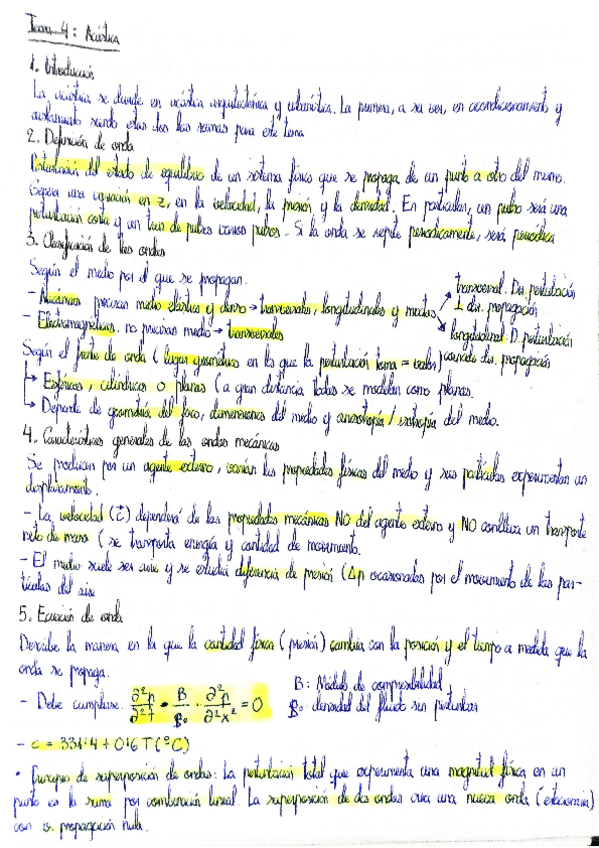 Tema 4: Acústica
1. Introducción
La acústica se divide en acústica arquitectónica y urbanística. La primera, a su vez, en acondicionamiento y
aislamiento siendo estas dos las ramas para este tema
2. Definición de onda
Perturbación del estado de equilibrio de un sistema físico que se propaga de un punto a otro del mismo.
una variación en z, en la velocidad, la presión y la densidad. En particular, un pulso será una
perturbación corta y un tren de pulsos varios pulsos. Si la onda se repite periódicamente, será periódica
3. Clasificación de las ondas
Según el medio por el que se propagan.
- Mecánicas: precisan medio elástico y denso → transversales, longitudinales y mixtas
transversal: Dir. perturbación
⊥ dir. propagación
- Electromagnéticas: no precisan medio → transversales
longitudinal: D. perturbación
coincide dir. propagación
Según el frente de onda (lugar geométrico en la que la perturbación toma = valor)
↳ Esféricas, cilíndricas o planas (a gran distancia todas se modelan como planas.
↳ Depende de geometría del foco, dimensiones del medio y anisotropía / isotropía del medio.
4. Características generales de las ondas mecánicas
Se producen por un agente externo, varían las propiedades físicas del medio y sus partículas experimentan un
desplazamiento.
- La velocidad (c) dependerá de las propiedades mecánicas NO del agente externo y NO conlleva un transporte
neto de masa (se transporta energía y cantidad de movimiento.
- El medio suele ser aire y se estudia diferencia de presión (Δp ocasionados por el movimiento de las par-
tículas del aire
5. Ecuación de onda
Describe la manera en la que la cantidad física (presión) cambia con la posición y el tiempo a medida que la
onda se propaga.
- Debe cumplirse: ∂²p/∂²t - B/β₀ · ∂²p/∂²x² = 0
B: Módulo de compresibilidad
β₀ densidad del fluido sin perturbar
- c = 331'4 + 0'6 T (ºC)
• Principio de superposición de ondas: La perturbación total que experimenta una magnitud física en un
punto es la suma por combinación lineal. La superposición de dos ondas crea una nueva onda (estacionaria)
con propagación nula.